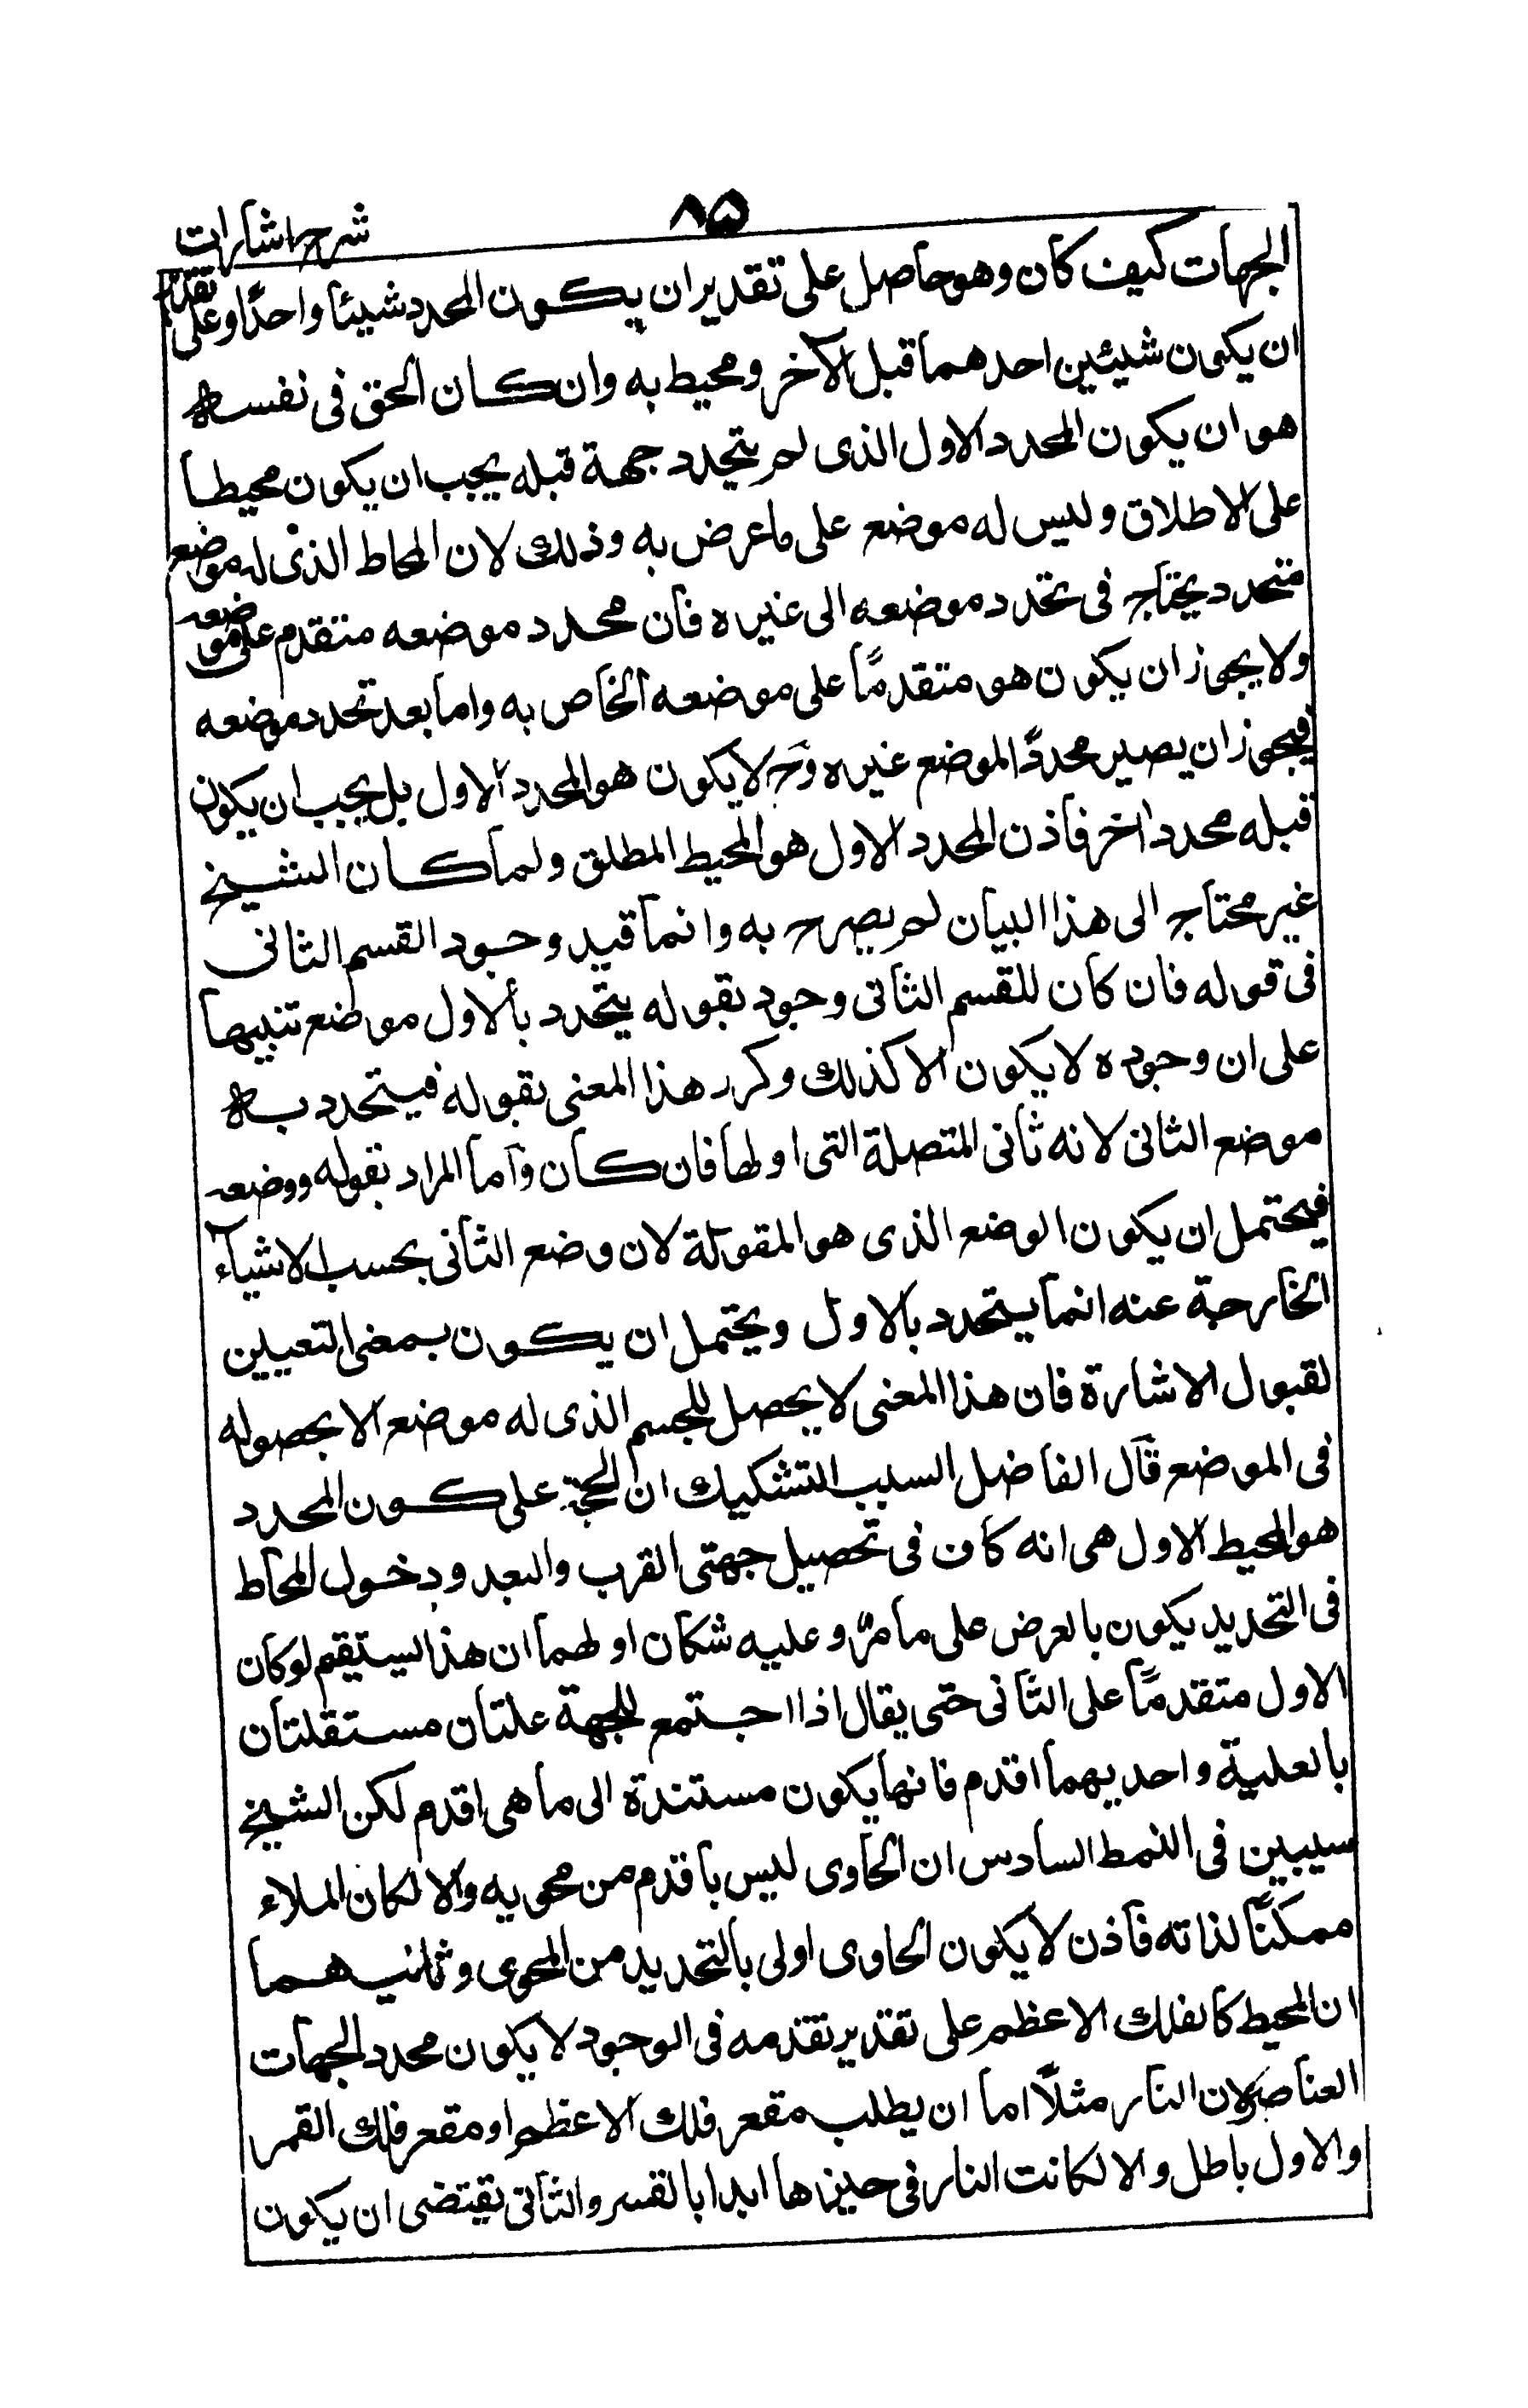 ۸۵
شرح اشارات
الجهات كيف كان وهو حاصل على تقدير ان يكون المحدد شيئا واحدًا وعلى تقدير
ان يكون شيئين احدهما قبل الآخر ومحيط به وان كان الحق فى نفسه
هو ان يكون المحدد الاول الذى لم يتحدد جهة قبله يجب ان يكون محيطا
على الاطلاق وليس له موضع على ما عرض به وذلك لان المحاط الذى له موضع
متحدد يحتاج فى تحدد موضعه الى غيره فان محدد موضعه متقدم على موضعه
ولا يجوز ان يكون هو متقدمًا على موضعه الخاص به واما بعد تحدد موضعه
فيجوز ان يصير محددًا لموضع غيره وح لا يكون هو المحدد الاول بل يجب ان يكون
قبله محدد اخر فاذن المحدد الاول هو المحيط المطلق ولما كان الشيخ
غير محتاج الى هذا البيان لم يصرح به وانما قيد وجود القسم الثانى
فى قوله فان كان للقسم الثانى وجود بقوله يتحدد بالاول موضع تنبيها
على ان وجوده لا يكون الا كذلك وكرر هذا المعنى بقوله فيتحدد به
موضع الثانى لانه ثانى المتصلة التى اولها فان كان واما المراد بقوله ووضعه
فيحتمل ان يكون الوضع الذى هو المقولة لان وضع الثانى بحسب الاشياء
الخارجة عنه انما يتحدد بالاول ويحتمل ان يكون بمعنى التعيين
لقبول الاشارة فان هذا المعنى لا يحصل للجسم الذى له موضع الا بحصوله
فى الموضع قال الفاضل السبب التشكيك ان الحجة على كون المحدد
هو المحيط الاول هى انه كان فى تحصيل جهتى القرب والبعد ودخول المحاط
فى التحديد يكون بالعرض على ما مرّ وعليه شكان اولهما ان هذا يستقيم لو كان
الاول متقدمًا على الثانى حتى يقال اذا اجتمع للجهة علتان مستقلتان
بالعلية واحديهما اقدم فانها يكون مستندة الى ما هى اقدم لكن الشيخ
سيبين فى النمط السادس ان الحاوى ليس باقدم من محويه والا لكان الملاء
ممكنًا لذاته فاذن لا يكون الحاوى اولى بالتحديد من المحوى وثانيهما
ان المحيط كالفلك الاعظم على تقدير تقدمه فى الوجود لا يكون محدد الجهات
العناصر لان النار مثلًا اما ان يطلب مقعر فلك الاعظم او مقعر فلك القمر
والاول باطل والا لكانت النار فى حيزها ابدا بالقسر والثانى يقتضى ان يكون